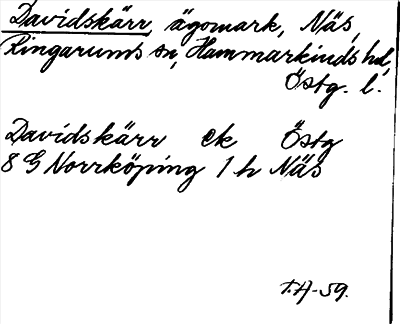 Davidskärr, ägomark, Näs,
Ringarums sn, Hammarkinds hd,
Östg. l.
Davidskärr ek Östg
8 G Norrköping 1 h Näs
T.H-59.